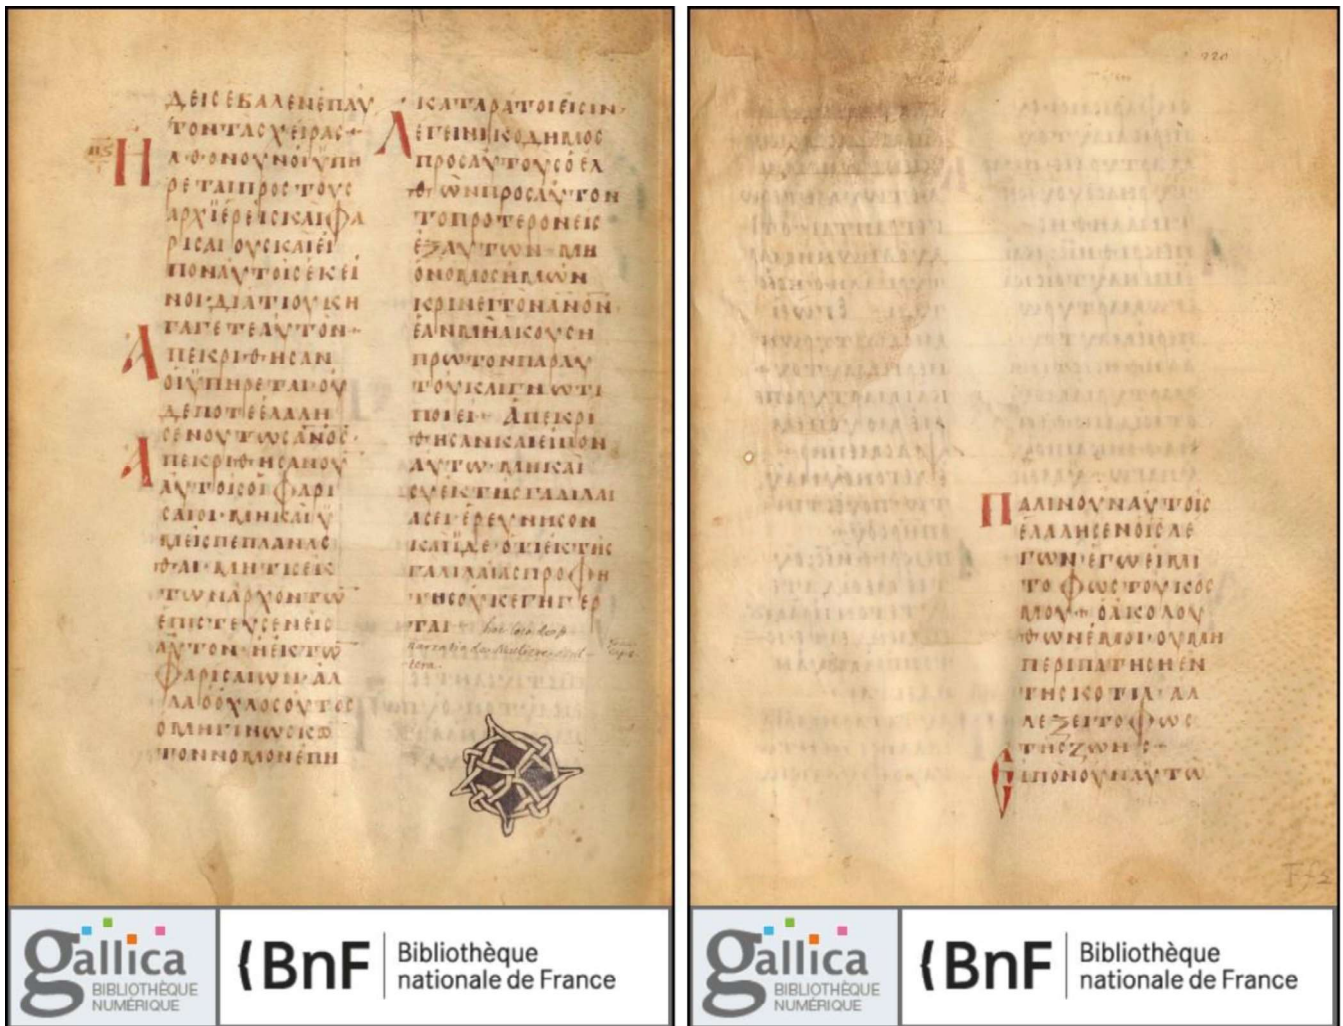 ΔΕΙΣΕΒΑΛΕΝΕΠΑΥ
ΤΟΝΤΑΣΧΕΙΡΑΣ
ΗΛΘΟΝΟΥΝΟΙΥΠΗ
ΡΕΤΑΙΠΡΟΣΤΟΥΣ
ΑΡΧΙΕΡΕΙΣΚΑΙΦΑ
ΡΙΣΑΙΟΥΣΚΑΙΕΙ
ΠΟΝΑΥΤΟΙΣΕΚΕΙ
ΝΟΙ·ΔΙΑΤΙΟΥΚΗ
ΓΑΓΕΤΕΑΥΤΟΝ
ΑΠΕΚΡΙΘΗΣΑΝ
ΟΙΥΠΗΡΕΤΑΙ·ΟΥ
ΔΕΠΟΤΕΕΛΑΛΗ
ΣΕΝΟΥΤΩΣΑΝΟΣ
ΑΠΕΚΡΙΘΗΣΑΝΟΥ
ΑΥΤΟΙΣΟΙΦΑΡΙ
ΣΑΙΟΙ·ΜΗΚΑΙΥ
ΜΕΙΣΠΕΠΛΑΝΑΣ
ΘΑΙ·ΜΗΤΙΣΕΚ
ΤΩΝΑΡΧΟΝΤΩ
ΕΠΙΣΤΕΥΣΕΝΕΙΣ
ΑΥΤΟΝ·ΗΕΚΤΩ
ΦΑΡΙΣΑΙΩΝ·ΑΛ
ΛΑΟΟΧΛΟΣΟΥΤΟΣ
ΟΜΗΓΙΝΩΣΚΩ
ΤΟΝΝΟΜΟΝΕΠΗ
ΚΑΤΑΡΑΤΟΙΕΙΣΙΝ
ΛΕΓΕΙΝΙΚΟΔΗΜΟΣ
ΠΡΟΣΑΥΤΟΥΣΟΕΛ
ΘΩΝΠΡΟΣΑΥΤΟΝ
ΤΟΠΡΟΤΕΡΟΝΕΙΣ
ΕΞΑΥΤΩΝ·ΜΗ
ΟΝΟΜΟΣΗΜΩΝ
ΚΡΙΝΕΙΤΟΝΑΝΟΝ
ΕΑΝΜΗΑΚΟΥΣΗ
ΠΡΩΤΟΝΠΑΡΑΥ
ΤΟΥΚΑΙΓΝΩΤΙ
ΠΟΙΕΙ· ΑΠΕΚΡΙ
ΘΗΣΑΝΚΑΙΕΙΠΟΝ
ΑΥΤΩ·ΜΗΚΑΙ
ΣΥΕΚΤΗΣΓΑΛΙΛΑΙ
ΑΣΕΙ·ΕΡΕΥΝΗΣΟΝ
ΚΑΙΙΔΕ·ΟΤΙΕΚΤΗΣ
ΓΑΛΙΛΑΙΑΣΠΡΟΦΗ
ΤΗΣΟΥΚΕΓΗΓΕΡ
ΤΑΙ
gallica
BIBLIOTHÈQUE
NUMÉRIQUE
BnF
Bibliothèque
nationale de France
220
ΠΑΛΙΝΟΥΝΑΥΤΟΙΣ
ΕΛΑΛΗΣΕΝΟΙΣΛΕ
ΓΩΝ·ΕΓΩΕΙΜΙ
ΤΟΦΩΣΤΟΥΚΟΣ
ΜΟΥ·ΟΑΚΟΛΟΥ
ΘΩΝΕΜΟΙ·ΟΥΜΗ
ΠΕΡΙΠΑΤΗΣΗΕΝ
ΤΗΣΚΟΤΙΑ·ΑΛ
ΛΕΞΕΙΤΟΦΩΣ
ΤΗΣΖΩΗΣ
ΕΙΠΟΝΟΥΝΑΥΤΩ
gallica
BIBLIOTHÈQUE
NUMÉRIQUE
BnF
Bibliothèque
nationale de France